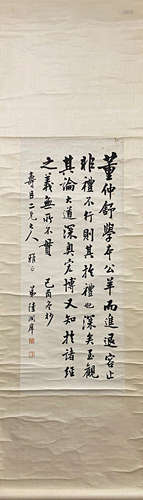 董仲舒學本公羊而進退容止
非禮不行則其於禮也深矣至觀
其論大道深奧宏博又知於諸經
之義無所不貫 己酉冬抄
壽臣二兄大人 雅正 弟陸潤庠